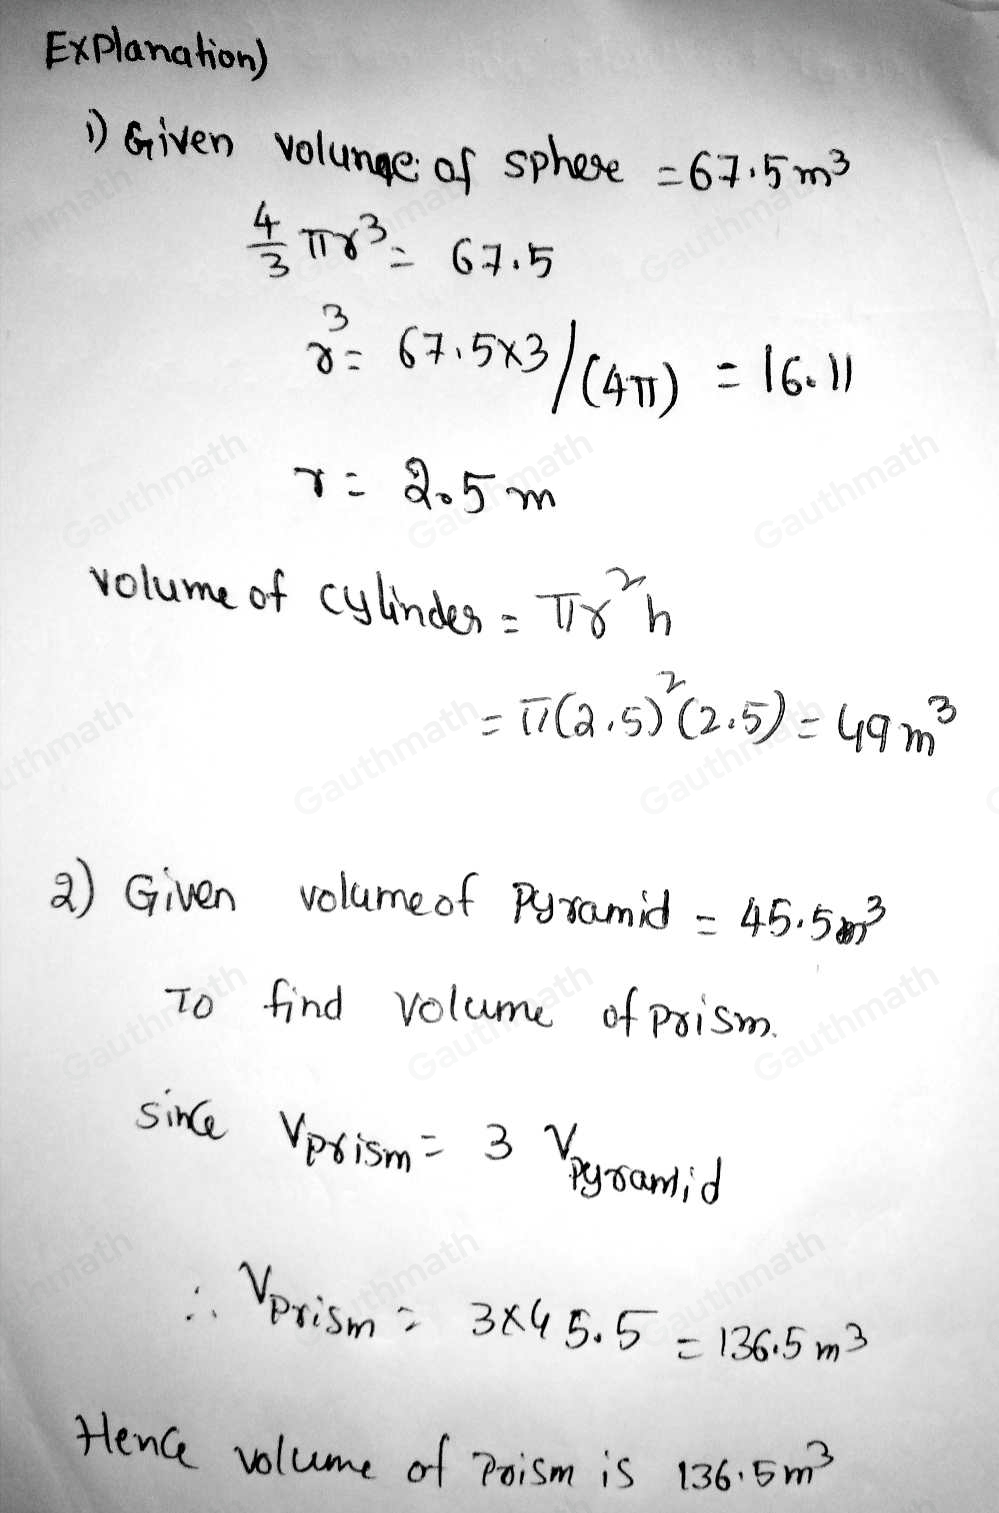 Explanation)
1) Given volume of sphere = 67.5 m³
4/3 πr³ = 67.5
r³ = 67.5×3/(4π) = 16.11
r = 2.5 m
volume of cylinder = πr²h
= π(2.5)²(2.5) = 49 m³
2) Given volume of Pyramid = 45.5 m³
To find volume of prism.
since Vprism = 3 Vpyramid
∴ Vprism = 3×45.5 = 136.5 m³
Hence volume of Prism is 136.5 m³
Gauthmath